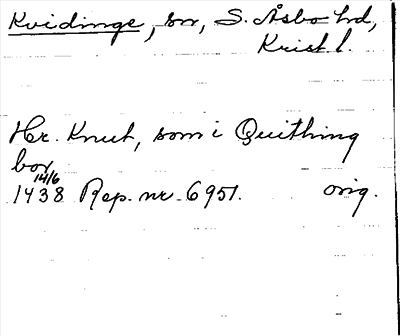 Kvidinge, sn, S. Åsbo hd,
Krist. l.
Hr. Knut, som i Quithing
bor
14/6
1438 Rep. nr. 6951. orig.